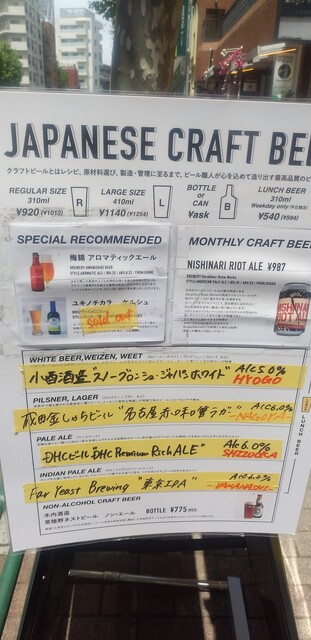 JAPANESE CRAFT BE
クラフトビールとはレシピ、原材料選び、製造・管理に至るまで、ビール職人が心を込めて造り出す最高品質のビ
REGULAR SIZE
310ml
¥920 (¥1012)
R
LARGE SIZE
410ml
¥1140 (¥1254)
L
BOTTLE
or
CAN
¥ask
B
LUNCH BEER
310ml
Weekday only
¥540 (¥594)
SPECIAL RECOMMENDED
梅錦 アロマティックエール
ユキノチカラ ケルシュ
sold out
MONTHLY CRAFT BEE
NISHINARI RIOT ALE ¥987
WHITE BEER, WEIZEN, WEET
小西酒造 "スノーブロンシュ・ジャパンホワイト" Alc5.0%
HYOGO
PILSNER, LAGER
盛田金しゃちビール "名古屋赤味噌ラガー" Alc6.0%
-NAGOYA-
PALE ALE
DHCビール DHC Premium Rich ALE" Alc6.0%
SHIZUOKA
INDIAN PALE ALE
Far Yeast Brewing "東京IPA"
YAMANASHI
LUNCH BEER
NON-ALCOHOL CRAFT BEER
木内酒造
常陸野ネストビール ノン・エール
BOTTLE ¥775